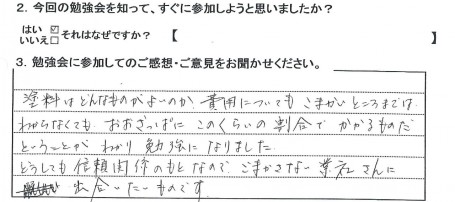 2. 今回の勉強会を知って、すぐに参加しようと思いましたか？
はい ☑
いいえ □ それはなぜですか？ 【 】
3. 勉強会に参加してのご感想・ご意見をお聞かせください。
塗料はどんなものがよいのか 費用についても こまかいところまでは
わからなくても おおざっぱに このくらいの割合で かかるものだ
というこことが わかり 勉強になりました
どうしても信頼関係のもとなので ごまかさない 業社さんに
出合いたいものです